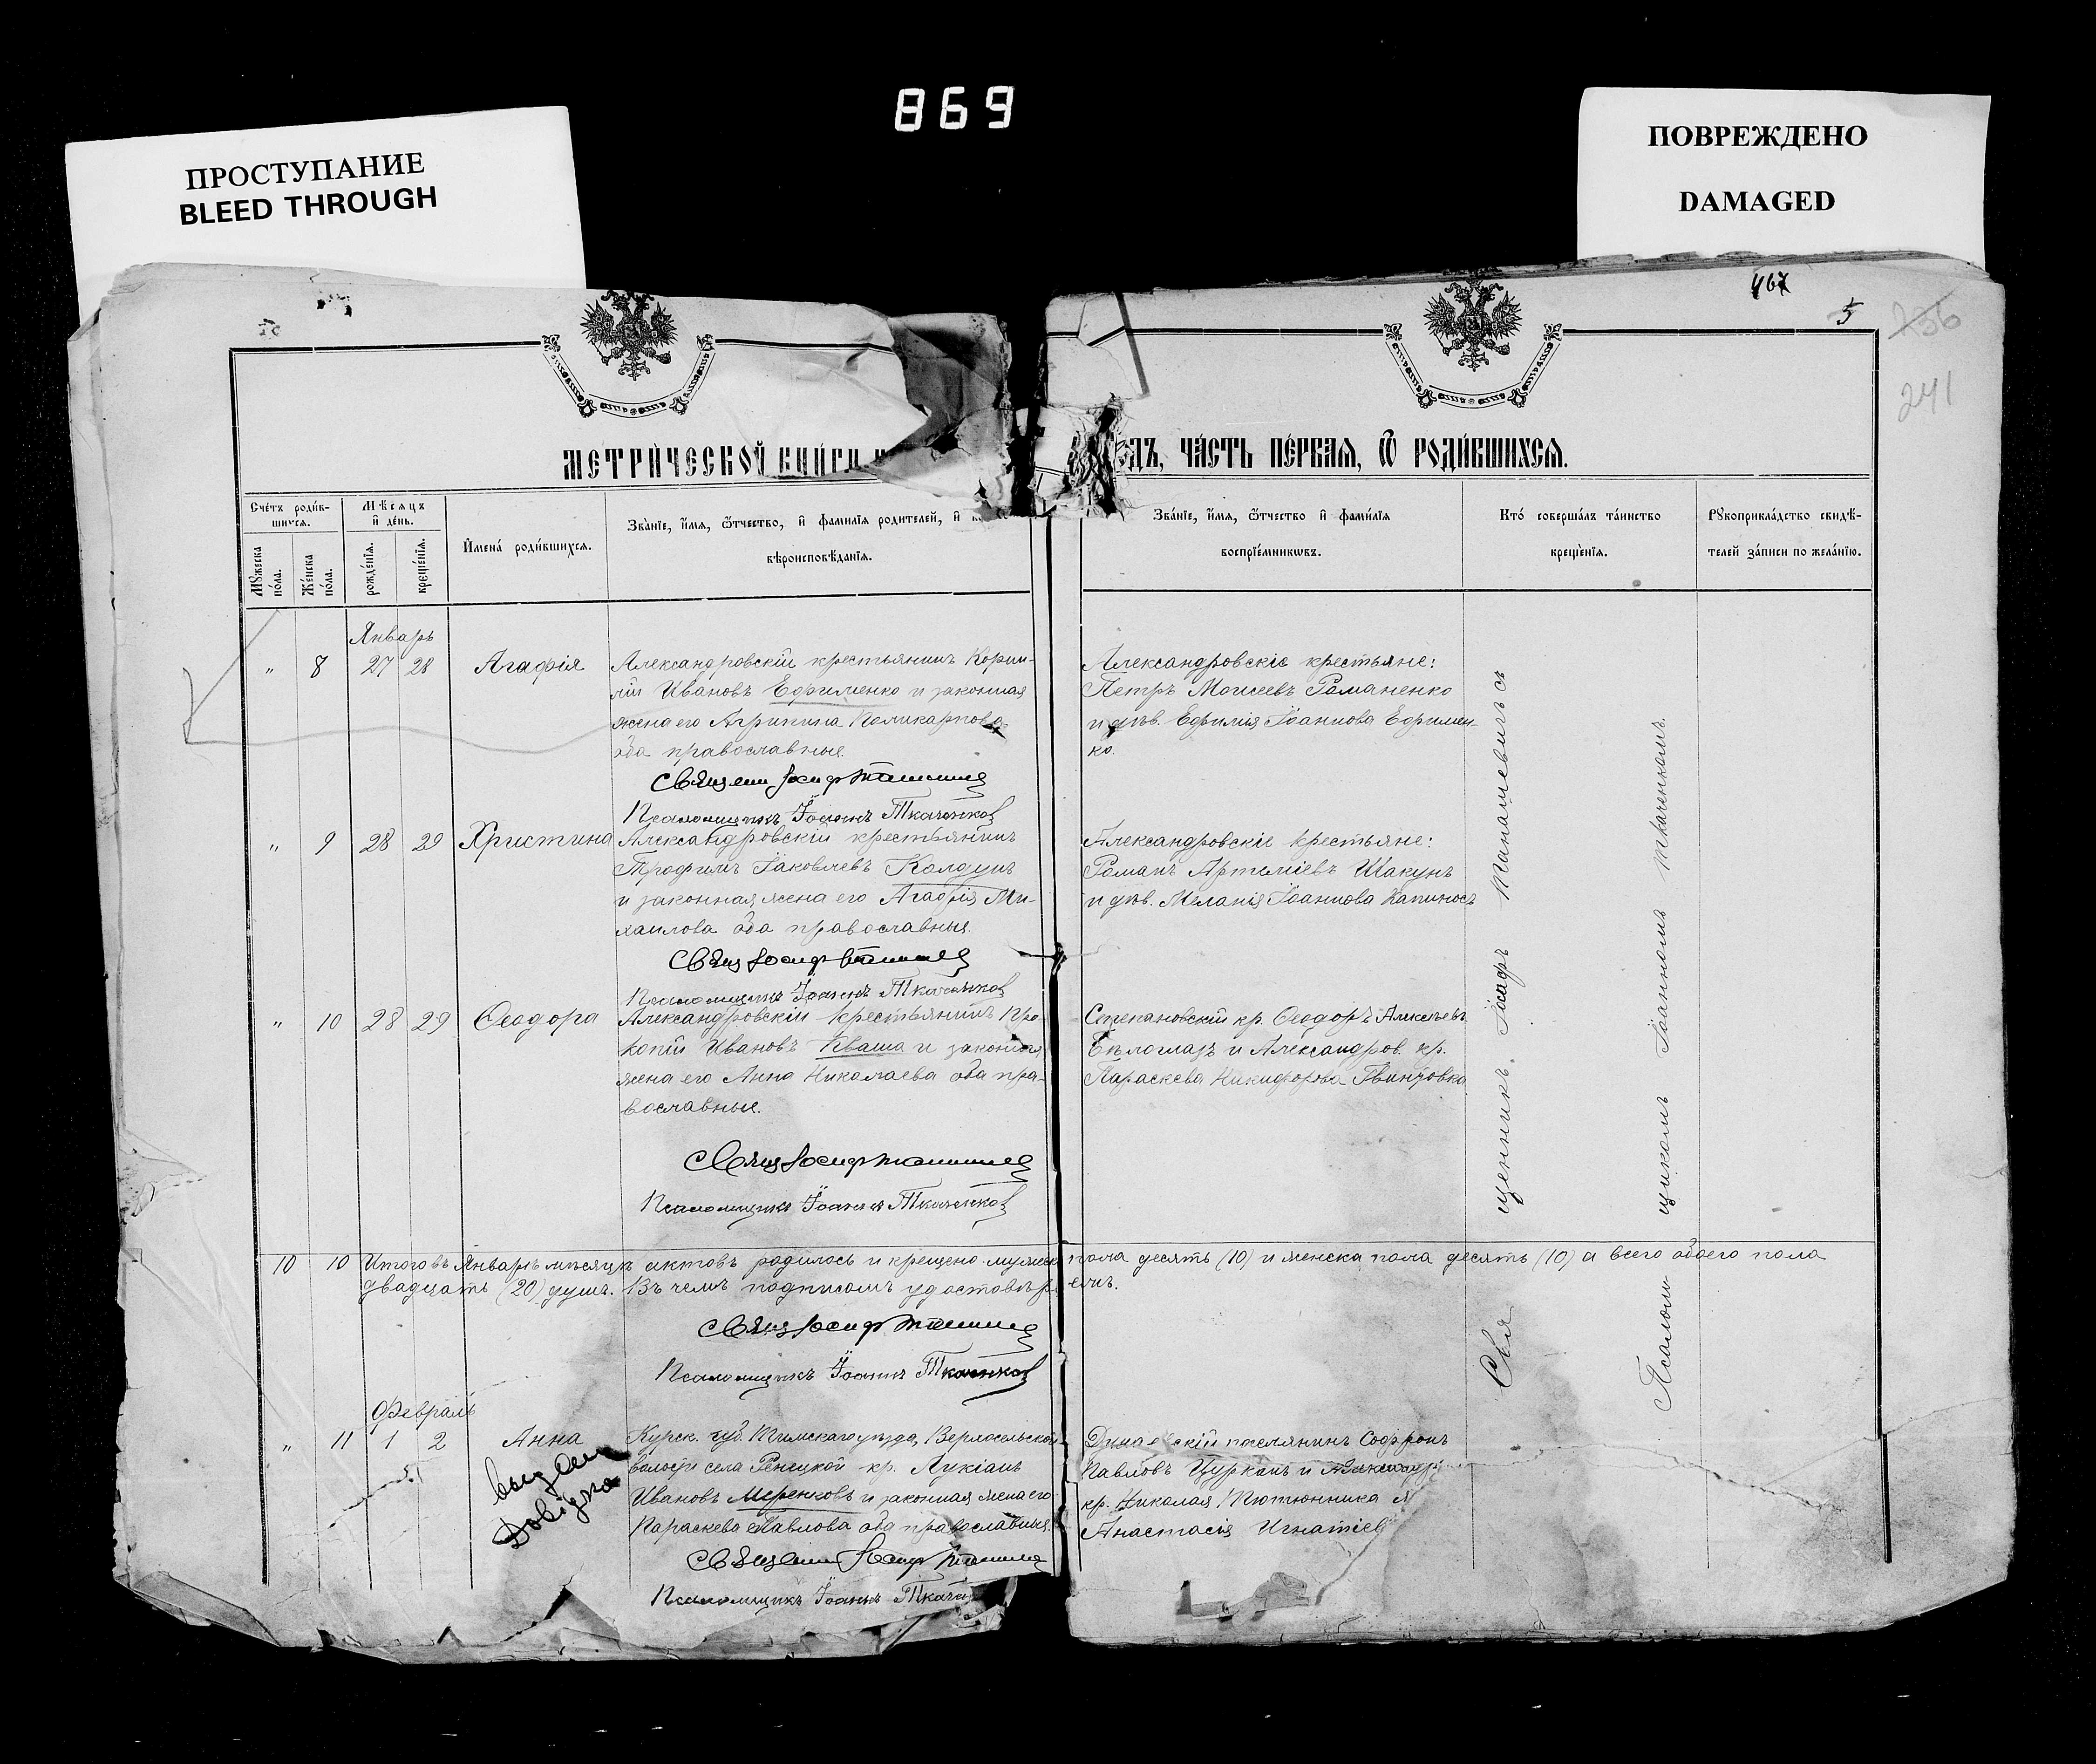 869
ПРОСТУПАНИЕ
BLEED THROUGH
ПОВРЕЖДЕНО
DAMAGED
467
5
241
МЕТРИ́ЧЕСКОЙ КНИ́ГИ
ЧА́СТЬ ПЕ́РВАЯ, Ѿ РОДИ́ВШИХСЯ.
Сче́тъ роди́в-
шихся.
Мѣ́сяцъ
и҆ де́нь.
Мꙋ́жеска
по́ла.
Же́нска
по́ла.
рожде́нїя.
креще́нїя.
И҆мена́ роди́вшихся.
Зва́нїе, и҆́мя, ѻ҆́тчество, и҆ фами́лїя родителей, и҆
вѣроисповѣ́данїя.
Зва́нїе, и҆́мя, ѻ҆́тчество и҆ фами́лїя
воспрїе́мникѡвъ.
Кто̀ соверша́лъ та́инство
креще́нїя.
Рꙋкоприкла́дство свидѣ́-
телей за́писи по жела́нїю.
Январь
" 8 27 28 Агафія
Александровскій крестьянинъ Корни-
лій Ивановъ Ефименко и законная
жена его Агрипина Поликарпова
оба православные.
Священ Іосифъ
Псаломщикъ Іоаннъ Ткаченков
Александровскіе крестьяне:
Петръ Моисеевъ Романенко
и дѣв. Ефимія Іоаннова Ефимен-
ко.
" 9 28 29 Христина
Александровскій крестьянинъ
Трофимъ Іаковлевъ Колодинъ
и законная жена его Агафія Ми-
хаилова оба православные.
Свящ Іосифъ
Псаломщикъ Іоаннъ Ткаченков
Александровскіе крестьяне:
Романъ Артеміевъ Шакунъ
и дѣв. Меланія Іоаннова Капиносъ
" 10 28 29 Ѳеодора
Александровскій крестьянинъ Про-
копій Ивановъ Кваша и законная
жена его Анна Николаева оба пра-
вославные.
Свящ Іосифъ
Псаломщикъ Іоаннъ Ткаченков
Степановскій кр. Ѳеодоръ Алексѣевъ
Бѣлоглазъ и Александров. кр.
Параскева Никифорова Гвинтовка
Священникъ Іосифъ Танашевичъ съ
Псаломщикомъ Іоанномъ Ткаченкомъ.
10 10 Итого въ Январѣ мѣсяцѣ актовъ родилось и крещено мужеска пола десять (10) и женска пола десять (10) а всего обоего пола
двадцать (20) душъ. Въ чемъ подписомъ удостовѣряемъ.
Свящ Іосифъ
Псаломщикъ Іоаннъ Ткаченков
Февраль
" 11 1 2 Анна
Курск. губ. Тимскаго уѣзда, Верхосельской
волости села кр. Лукіанъ
Ивановъ Меренковъ и законная жена его
Параскева Павлова оба православные.
Священ Іосифъ
Псаломщикъ Іоаннъ
поселянинъ Софронъ
Павловъ Цурканъ и
кр. Николая Тютюнника
Анастасія Игнатіев